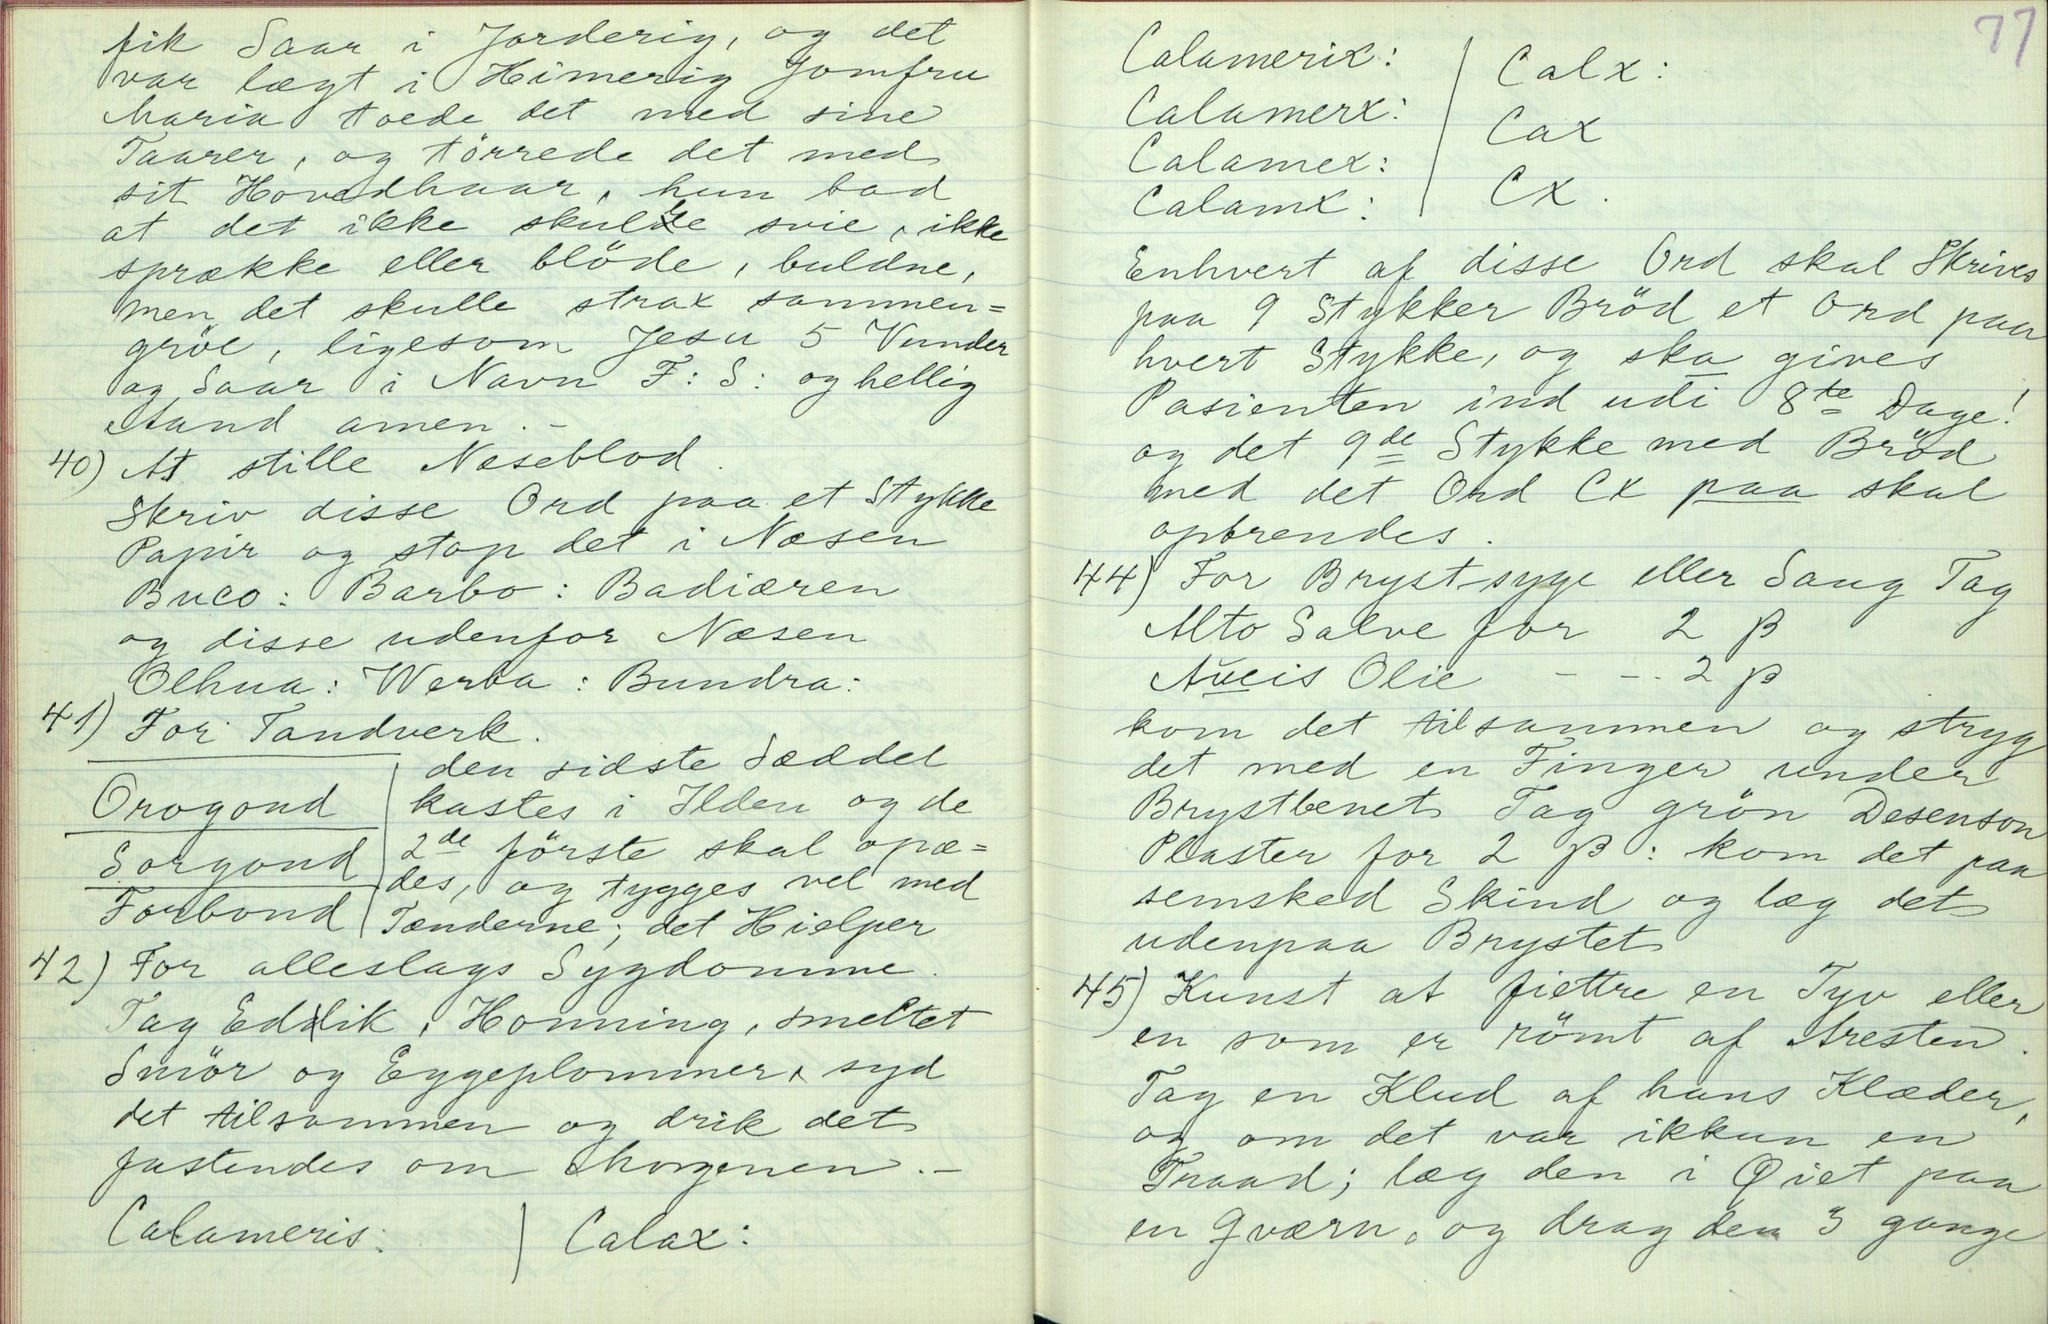 fik Saar i Jorderig, og det
var lægt i Himerig Jomfru
Maria toede det med sine
Taarer, og törrede det med
sit Hovedhaar, hun bad
at det ikke skulde svie, ikke
sprække eller blöde, buldne,
men det skulle strax sammen=
gröe, ligesom Jesu 5 Vunder
og Saar i Navn F: S: og hellig
Aand amen. -
40) At stille Næseblod.
Skriv disse Ord paa et Stykke
Papir og stop det i Næsen
Buco: Barbo: Badiæren
og disse udenfor Næsen
Olhua: Werba: Bundra:
41) For Tandverk.
Orogond
Sorgond
Forbond
den sidste Sæddel
kastes i Ilden og de
2de förste skal opæ=
des, og tygges vel med
Tænderne; det Hielper
42) For alleslags Sygdomme.
Tag Eddik, Honning, smeltet
Smör og Eggeplommer, syd
det tilsammen og drik det
fastendes om Morgenen. -
Calameris: | Calax:
77
Calamerix: | Calx:
Calamerx: | Cax
Calamex: | Cx.
Calamx:
Enhvert af disse Ord skal Skrives
paa 9 Stykker Bröd et Ord paa
hvert Stykke, og ska gives
Pasienten ind udi 8te Dage!
og det 9de Stykke med Bröd
med det Ord Cx paa skal
opbrendes.
44) For Bryst-syge eller Sang Tag
Alto Salve for 2 β
Aucis Olie - -. 2 β
kom det tilsammen og stryg
det med en Finger under
Brystbenet Tag grön Desenson
Plaster for 2 β: kom det paa
semsked Skind og læg det
udenpaa Brystet
45) Kunst at fiettre en Tyv eller
en som er römt af Aresten.
Tag en Klud af hans Klæder,
og om det var ikkun en
Traad; læg den i Øiet paa
en Qværn, og drag den 3 gange